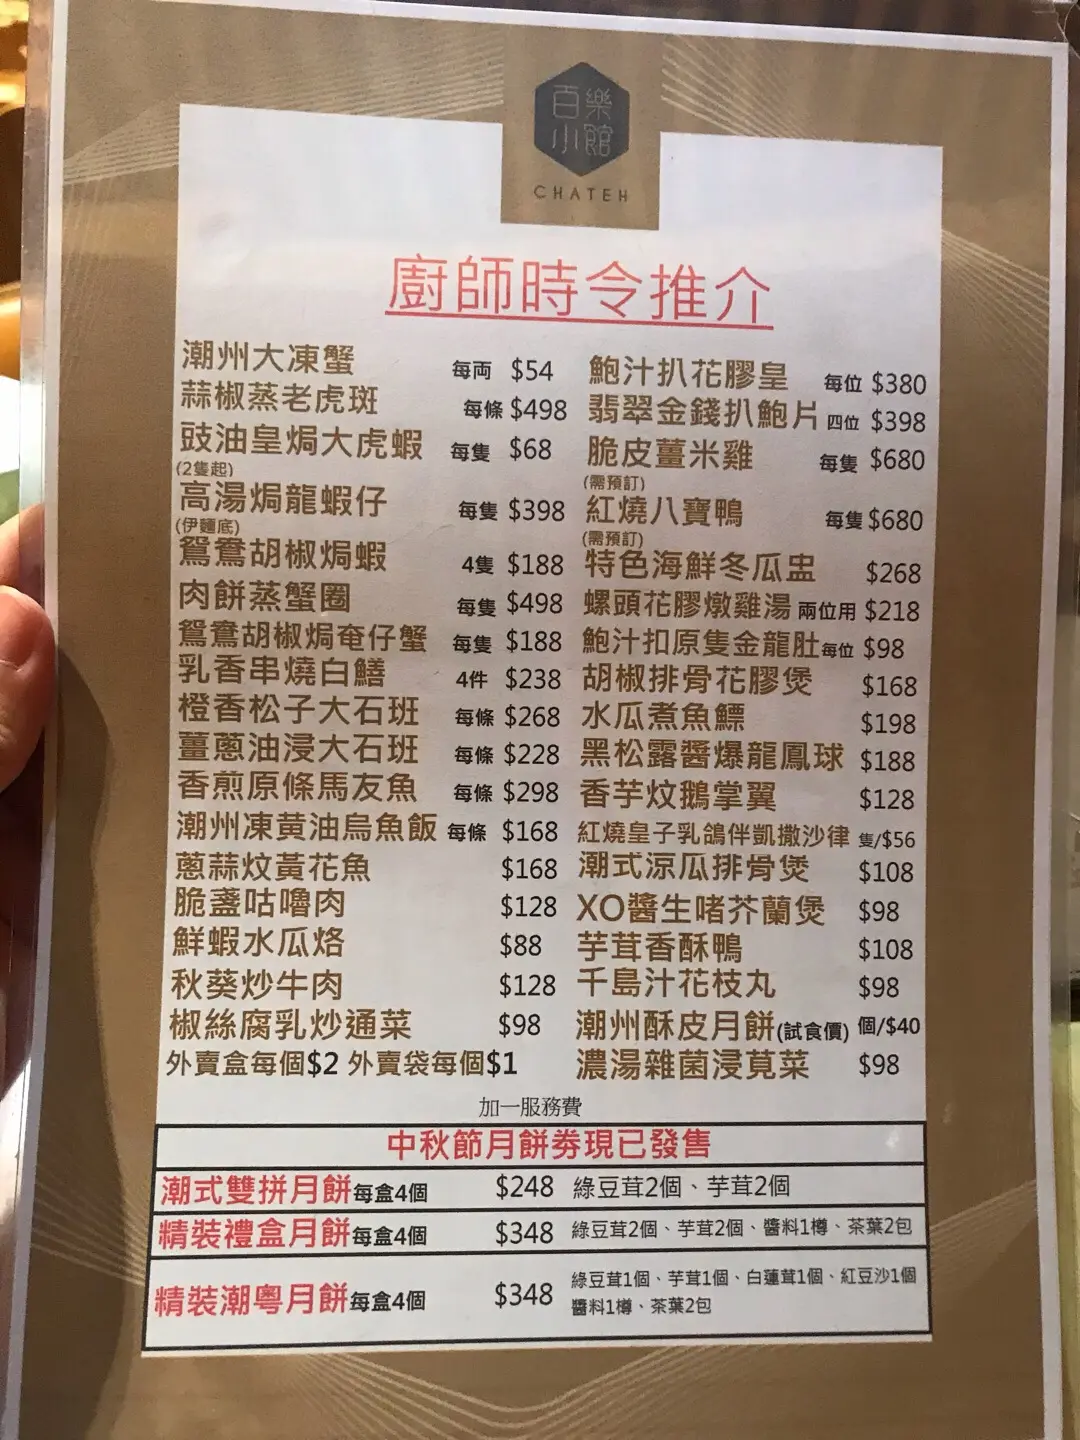 百樂
小館
CHATEH
廚師時令推介
潮州大凍蟹 每両 $54
蒜椒蒸老虎斑 每條 $498
豉油皇焗大虎蝦 每隻 $68
(2隻起)
高湯焗龍蝦仔 每隻 $398
(伊麵底)
鴛鴦胡椒焗蝦 4隻 $188
肉餅蒸蟹圈 每隻 $498
鴛鴦胡椒焗奄仔蟹 每隻 $188
乳香串燒白鱔 4件 $238
橙香松子大石班 每條 $268
薑蔥油浸大石班 每條 $228
香煎原條馬友魚 每條 $298
潮州凍黃油烏魚飯 每條 $168
蔥蒜炆黃花魚 $168
脆盞咕嚕肉 $128
鮮蝦水瓜烙 $88
秋葵炒牛肉 $128
椒絲腐乳炒通菜 $98
外賣盒每個$2 外賣袋每個$1
鮑汁扒花膠皇 每位 $380
翡翠金錢扒鮑片 四位 $398
脆皮薑米雞 每隻 $680
(需預訂)
紅燒八寶鴨 每隻 $680
(需預訂)
特色海鮮冬瓜盅 $268
螺頭花膠燉雞湯 兩位用 $218
鮑汁扣原隻金龍肚 每位 $98
胡椒排骨花膠煲 $168
水瓜煮魚鰾 $198
黑松露醬爆龍鳳球 $188
香芋炆鵝掌翼 $128
紅燒皇子乳鴿伴凱撒沙律 隻/$56
潮式涼瓜排骨煲 $108
XO醬生啫芥蘭煲 $98
芋茸香酥鴨 $108
千島汁花枝丸 $98
潮州酥皮月餅(試食價) 個/$40
濃湯雜菌浸莧菜 $98
加一服務費
中秋節月餅券現已發售
潮式雙拼月餅每盒4個 $248 綠豆茸2個、芋茸2個
精裝禮盒月餅每盒4個 $348 綠豆茸2個、芋茸2個、醬料1樽、茶葉2包
精裝潮粵月餅每盒4個 $348 綠豆茸1個、芋茸1個、白蓮茸1個、紅豆沙1個
醬料1樽、茶葉2包